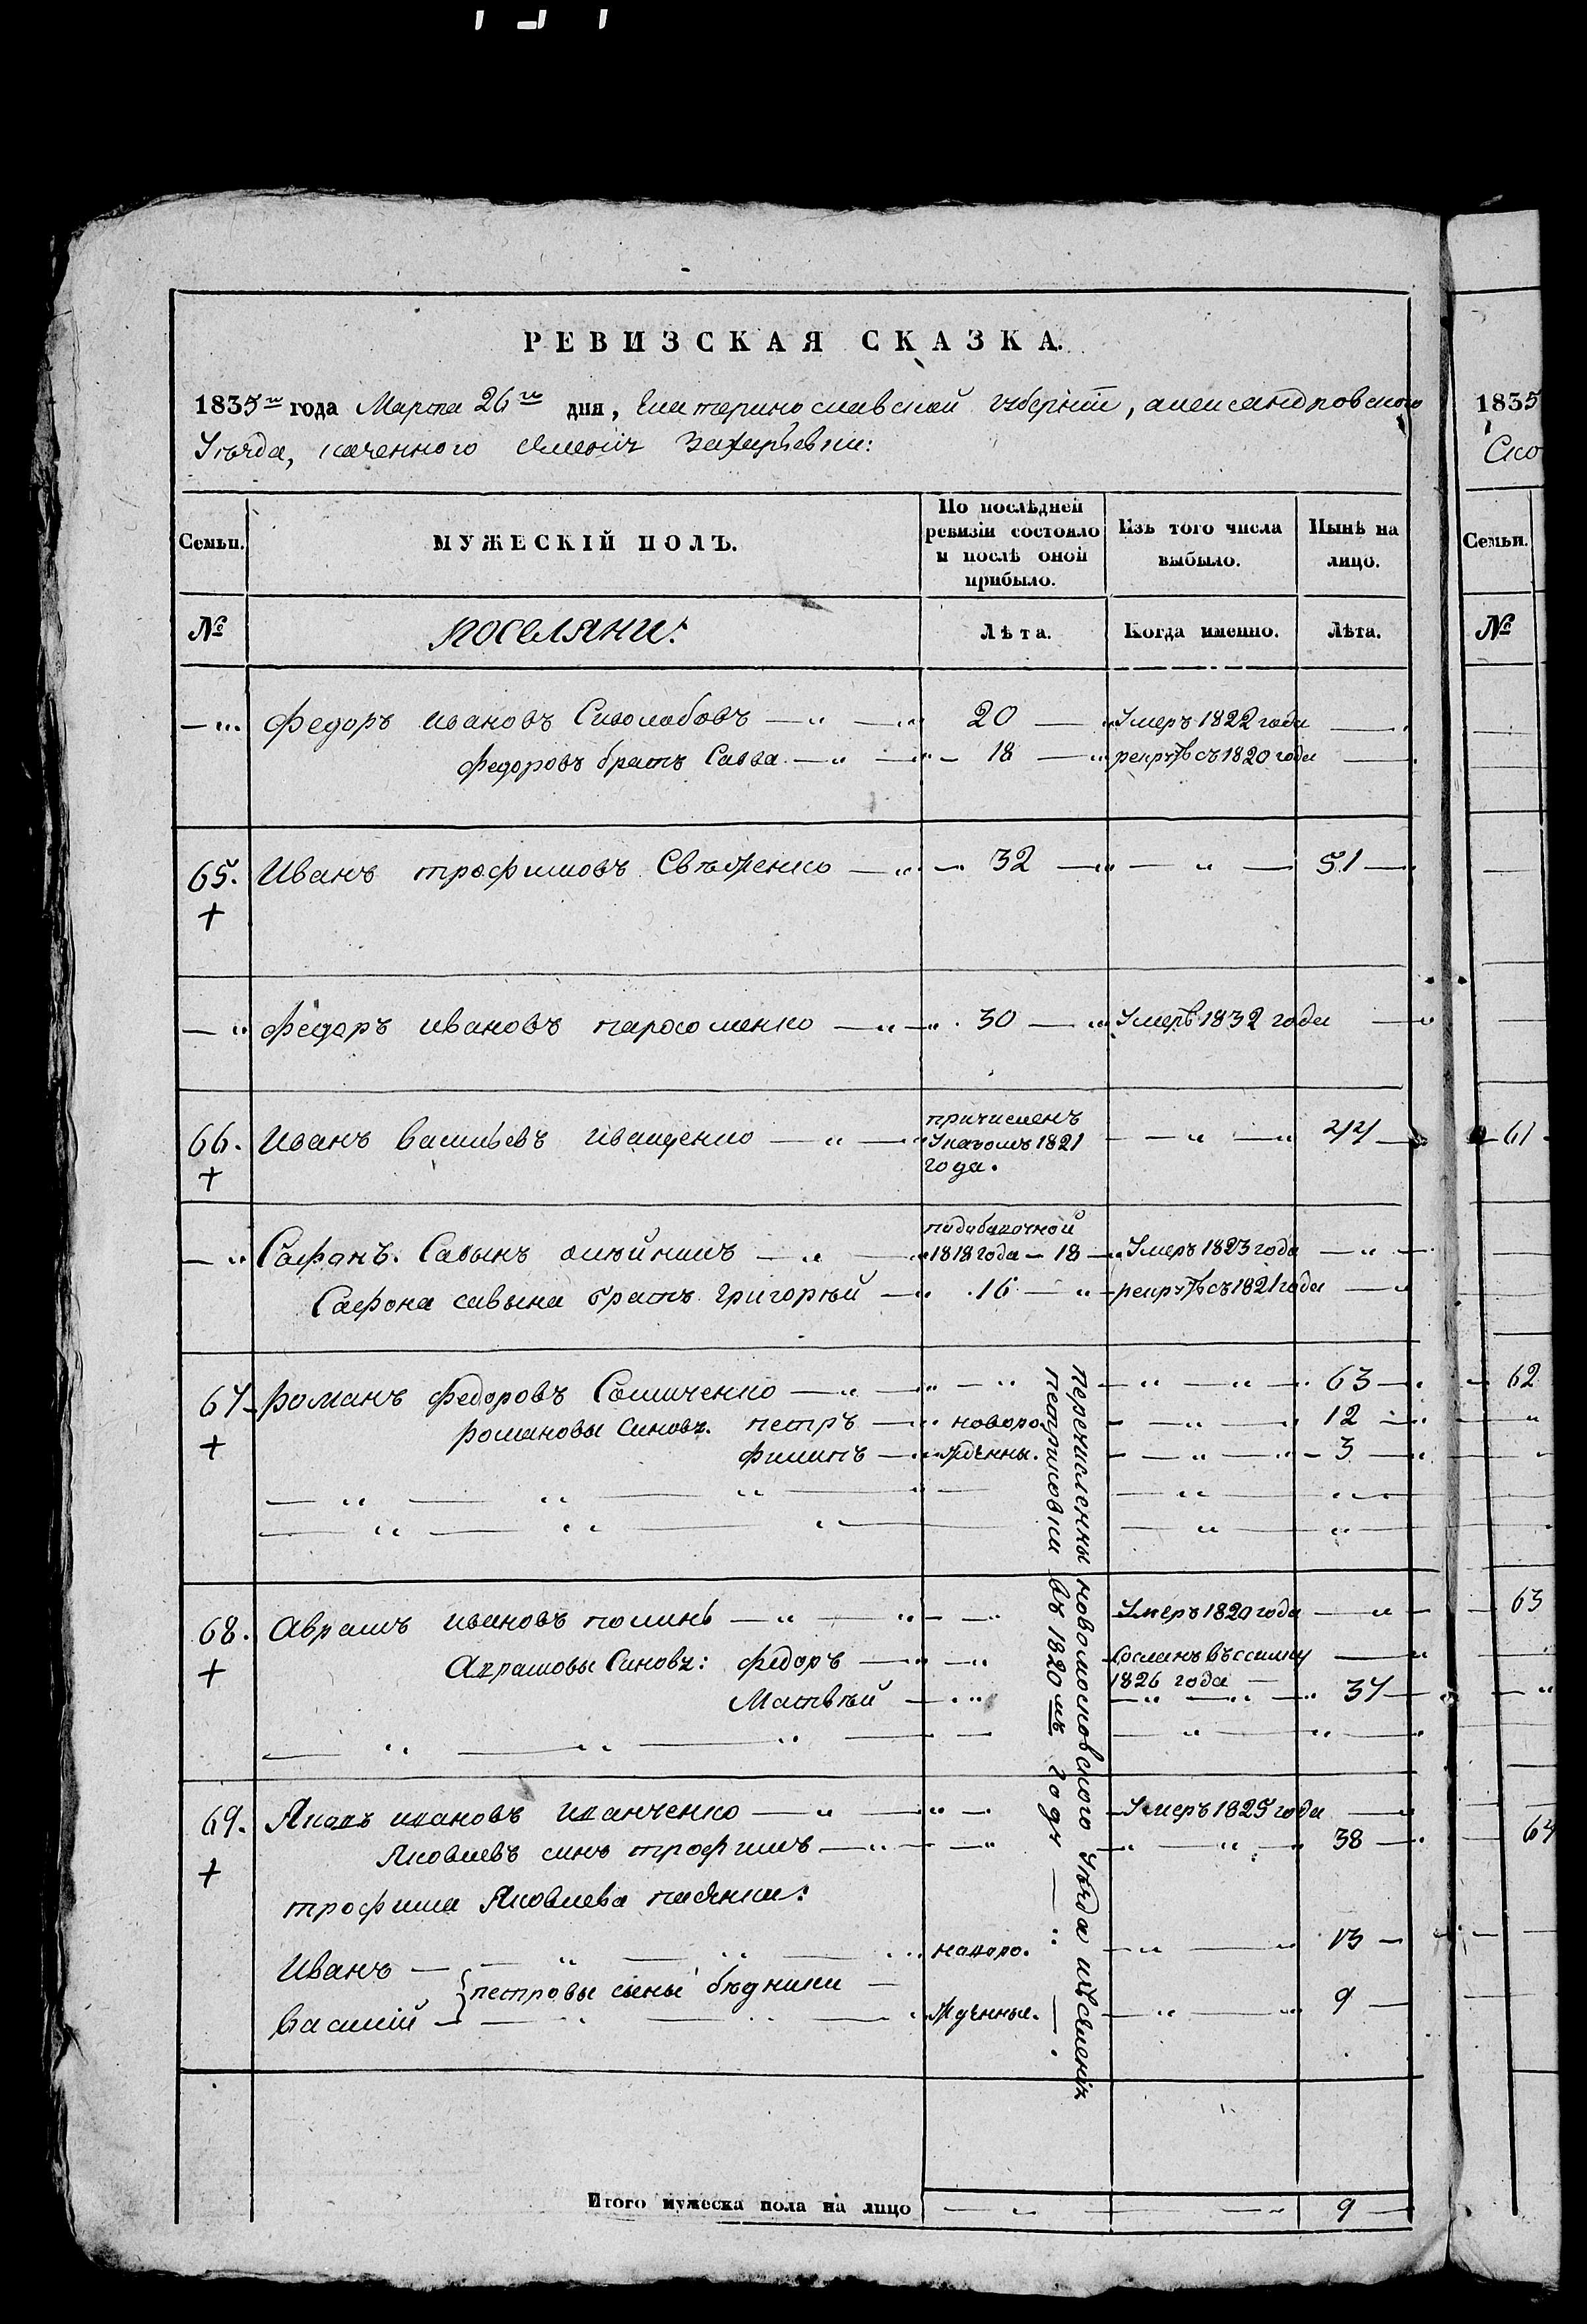 РЕВИЗСКАЯ СКАЗКА.
1835го года Марта 26го дня, Екатеринославской губерніи, александровского
Уезда, казенного Селенія Захарьевки:
Семьи. МУЖЕСКІЙ ПОЛЪ. По послѣдней ревизіи состояло и послѣ оной прибыло. Изъ того числа выбыло. Нынѣ на лицо.
№ поселяни: Лѣта. Когда именно. Лѣта.
Федоръ ивановъ 20 Умеръ 1822 года
Федоровъ братъ Савва 18 съ 1820 года
65. Иванъ трофимовъ 32 51
Федоръ ивановъ пархоменко 30 Умеръ 1832 года
66. Иванъ васильевъ иващенко причисленъ Указомъ 1821 года. 44
Сафонъ Савынъ олѣйникъ 1818 года 18 Умеръ 1823 года
Сафона савына братъ григорѣй 16 съ 1821 года
67. романъ федоровъ 63
романовы Синовъ. петръ новоро 12
филипъ жденны. 3
68. Аврамъ ивановъ Умеръ 1820 года
Аврамовы Синовъ: федоръ Сосланъ въ ссилку 1826 года
Матвѣй 37
69. Яковъ ивановъ иванченко Умеръ 1825 года
Яковлевъ синъ трофимъ 38
трофима Яковлева пасинки:
Иванъ новоро. 13
петровы сыны бѣдники
василій жденные. 9
перечисленны новомосковского Уезда изъ селенія
петриковки въ 1820мъ году
Итого мужеска пола на лицо 9
1835
Ско
Семьи.
№
61
62
63
64